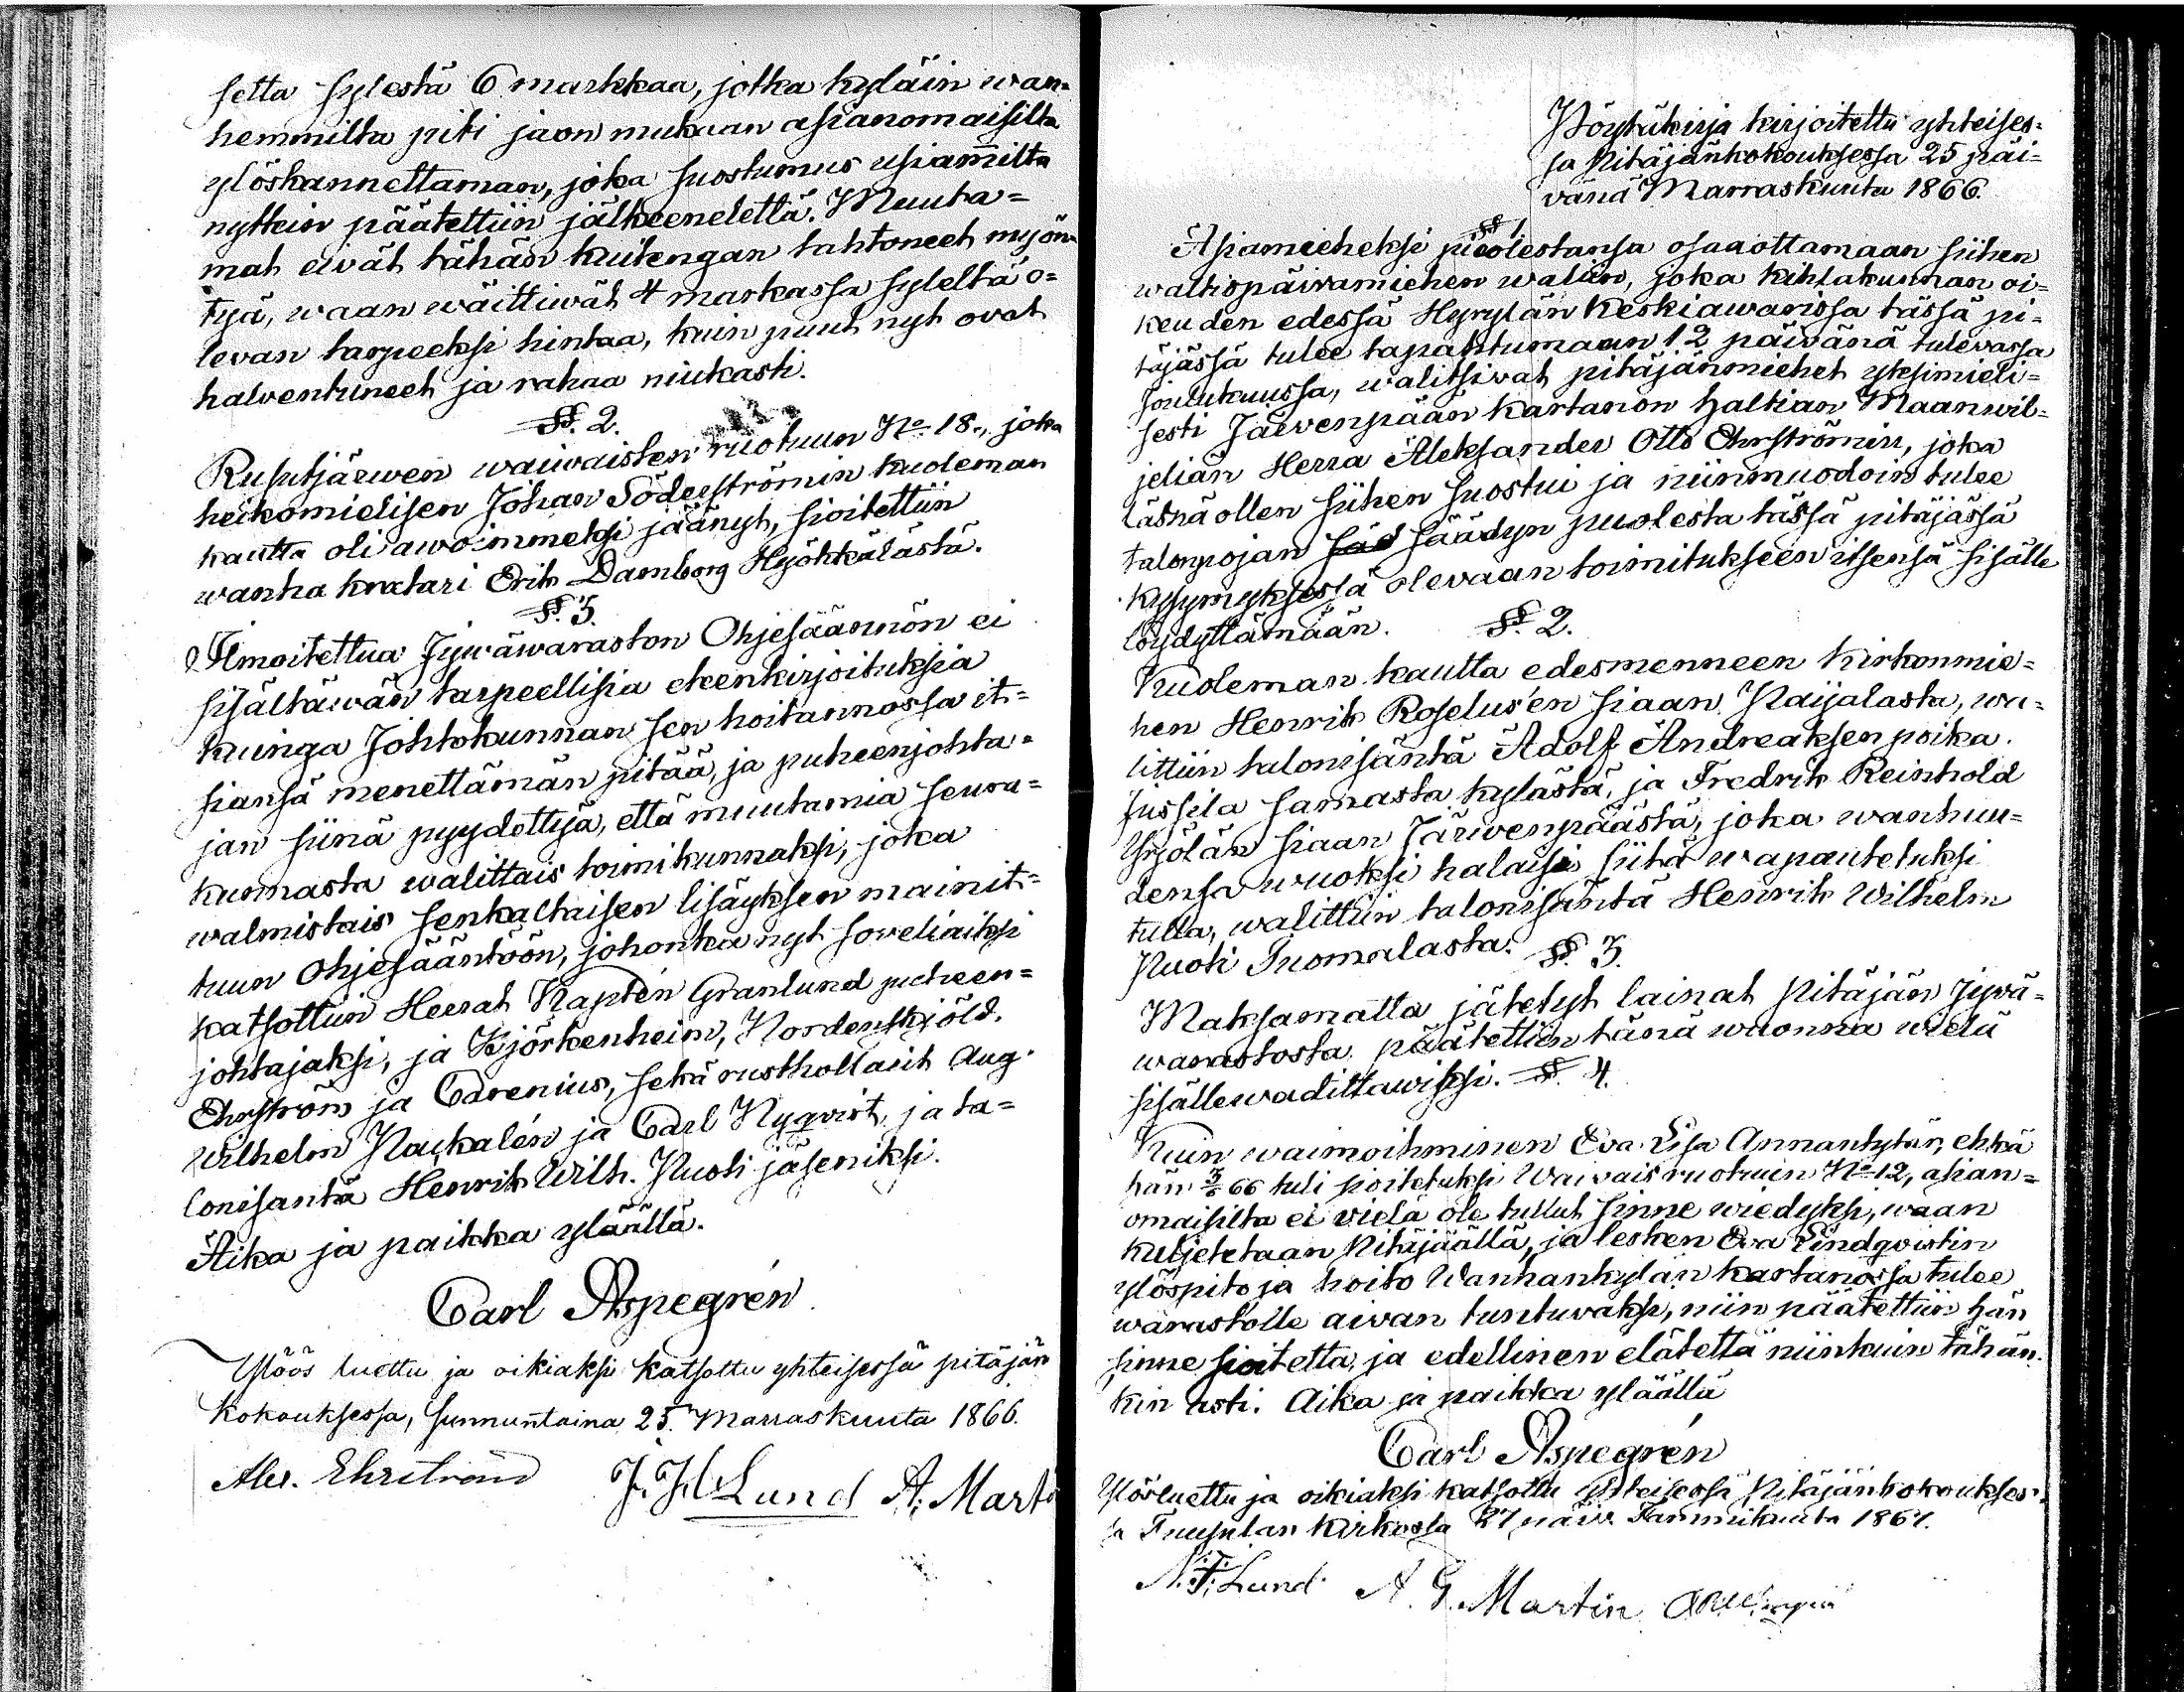 setta sylestä 6 markkaa, jotka kyläin wan=
hemmilta piti jaon mukaan asianomaisilta
ylöskannettaman, joka suostumus usiam̅ilta
nyttein päätettiin jälkeenelettä. Muuta=
mat eivät tähän kuitengan tahtoneet myön=
tyä, waan wäittiwät 4 markassa syleltä o=
levan tarpeeksi hintaa, kuin puut nyt ovat
halventuneet ja rahaa niukasti.
§. 2.
Rusutjärwen waiwaisten ruotuun No 18., joka
heikomielisen Johan Söderströmin kuoleman
kautta oli awoimmeksi jäänyt, sioitettiin
wanha kratari Erik Damborg Hyökkälästä.
§. 3.
Ilmoitettua Jywäwaraston Ohjesäännön ei
sisältäwän tarpeellisia eteenkirjoituksia
kuinga Johtokunnan sen hoitannossa it=
siansä menettämän pitää, ja puheenjohta=
jan siinä pyydettyä, että muutamia seura=
kunnasta walittais toimikunnaksi, joka
walmistais senkaltaisen lisäyksen mainit=
tuun Ohjesääntöön, johonka nyt soveliaiksi
katsottiin Herrat Kaptén Granlund puheen=
johtajaksi, ja Björkenheim, Nordenskjöld.
Ehrström ja Carenius, sekä rusthollarit Aug.
Wilhelm Naukalén ja Carl Nyqvist, ja ta=
lonisäntä Henrik Wilh. Nuoti jäseniksi.
Aika ja paikka yläällä.
Carl Aspegrén
Ylöös luettu ja oikiaksi katsottu yhteisessä pitäjän
kokouksessa, sunnuntaina 25. Marraskuuta 1866.
Alex. Ehrström J. F. Lund A. Marti
Pöytäkirja kirjoitettu yhteises=
sa Pitäjänkokouksessa 25 päi=
vänä Marraskuuta 1866.
§ 1.
Asiamieheksi puolestansa osaaottamaan siihen
waltiopäivämiehen waliin, joka kihlakunnan oi=
keuden edessä Hyrylän Keskiawarissa tässä pi=
täjässä tulee tapahtumaan 12 päivänä tulevassa
Joulukuussa, walitsivat pitäjänmiehet yksimieli=
sesti Järvenpään Kartanon Haltian Maanwil=
jeliän Herra Aleksander Otto Ehrströmin, joka
läsnä ollen siihen suostui ja niinmuodoin tulee
talonpojan säd säädyn puolesta tässä pitäjässä
kysymyksessä olevaan toimitukseen itsensä sisälle
löydyttämään. §. 2.
Kuoleman kautta edesmenneen Kirkonmie=
hen Henrik Roselus'en siaan Paijalasta, wa=
littiin talonisäntä Adolf Andreaksen poika
Jussila samasta kylästä, ja Fredrik Reinhold
Yrjölän siaan Järwenpäästä, joka wanhuu=
densa wuoksi halaisi siitä wapautetuksi
tulla, walittiin talonisäntä Henrik Wilhelm
Nuoti Tuomalasta. §. 3.
Maksamatta jätetyt lainat Pitäjän Jywä=
warastosta, päätettiin tänä wuonna wielä
sisällewadittawiksi. §. 4.
Kuin waimoihminen Eva Lisa Annantytär, ehkä
hän 3/6 66 tuli sioitetuksi Waivaisruotuin No 12, asian=
omaisilta ei vielä ole tullut sinne wiedyksi, waan
kuljetetaan Pitäjäällä, ja lesken Eva Lindqvistin
ylöspito ja hoito Wanhankylän kartanossa tulee
warastolle aivan tuntuvaksi, niin päätettiin hän
sinne sioitetta, ja edellinen elätettä niinkuin tähän
kin asti. Aika ja paikka yläällä
Carl Aspegrén
Ylösluettu ja oikiaksi katsottu yhteisessä Pitäjänkokoukses=
sa Tuusulan kirkossa 27 päiv. Tammikuuta 1867.
J. F. Lund A. G. Martin